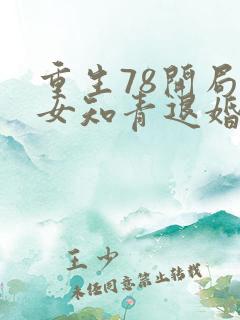 重生78开局
女知青退婚
王少
未经同意禁止转载